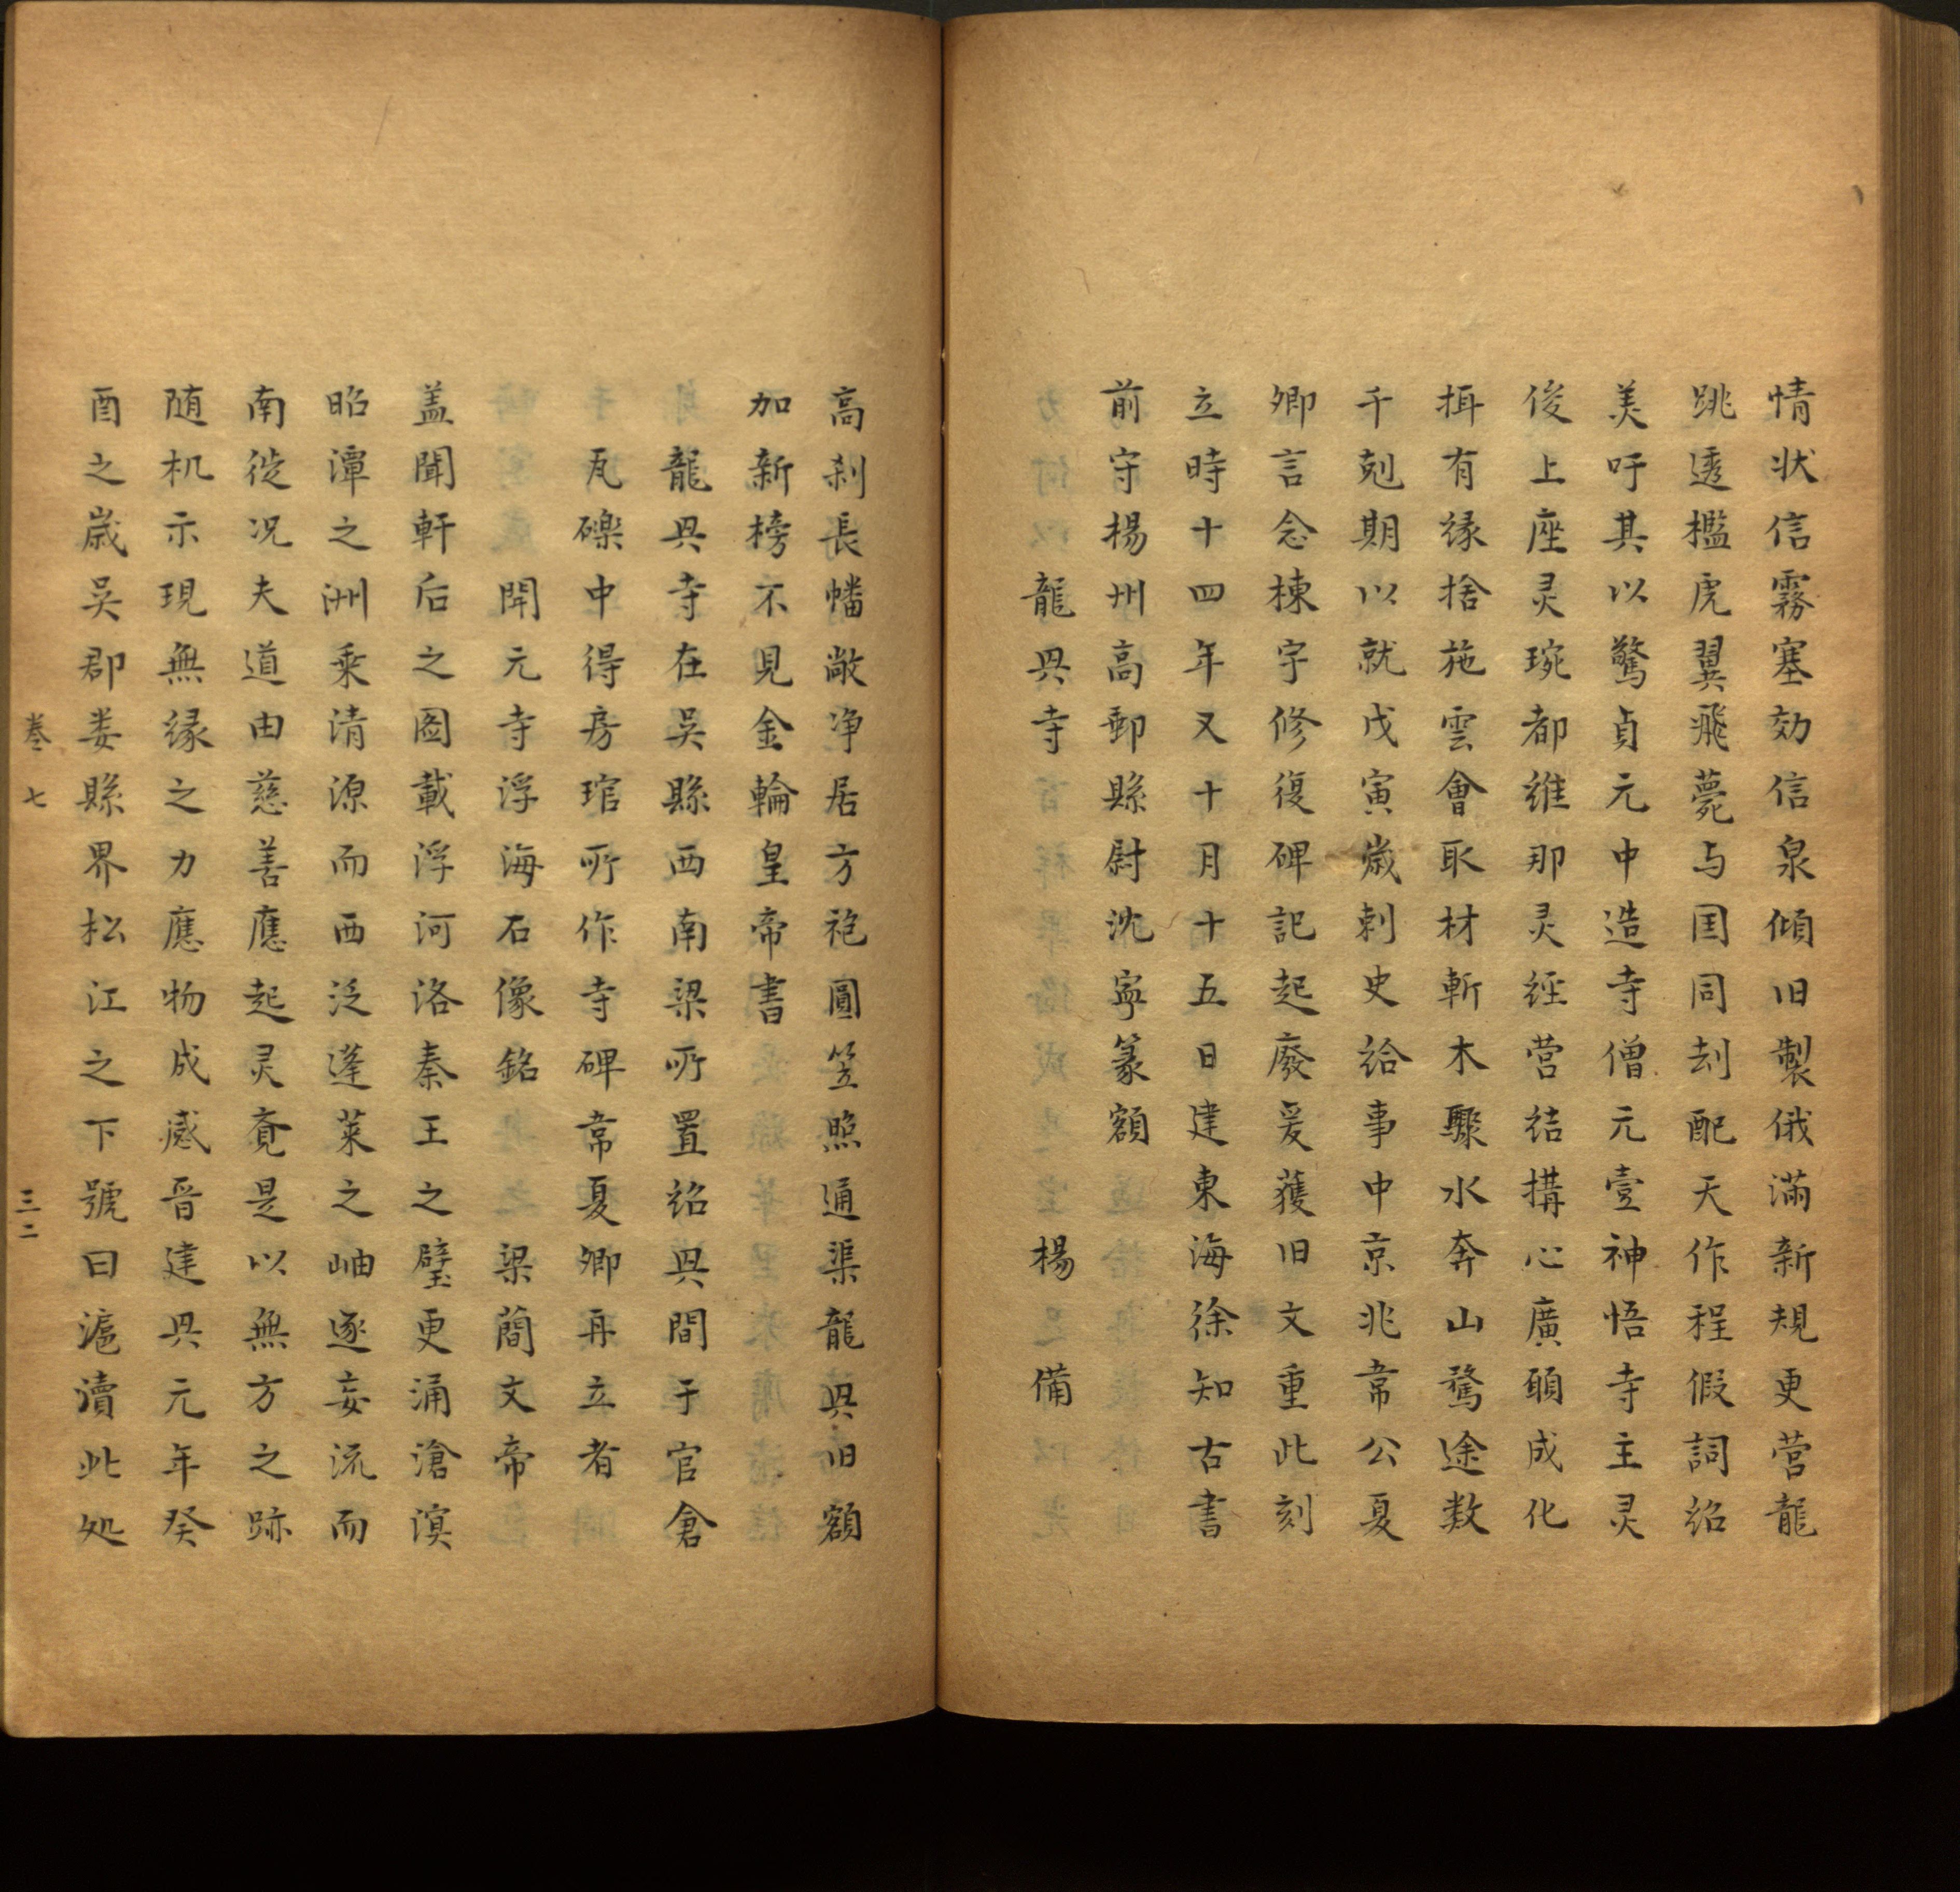 情状信霧塞効信泉傾旧製俄滿新規更营龍
跳透檻虎翼飛甍与囯同刦配天作程假詞紹
美吁其以驚貞元中造寺僧元壹神悟寺主灵
俊上座灵琬都維那灵経营结搆心廣願成化
揖有縁捨施雲會取材斬木驟水奔山鶩途数
千剋期以就戊寅嵗刺史給事中京兆常公夏
卿言念棟宇修復碑記起廢爰獲旧文重此刻
立時十四年又十月十五日建東海徐知古書
前守楊州高郵縣尉沈寧篆額
龍㒷寺 楊備
高刹長幡敞净居方袍圓笠照通渠龍㒷旧額
加新榜不見金輪皇帝書
龍㒷寺在吳縣西南梁所置紹㒷間于官倉
瓦礫中得房琯所作寺碑常夏卿再立者
開元寺浮海石像銘 梁簡文帝
盖聞軒后之圖載浮河洛秦王之璧更涌滄溟
昭潭之洲乘清源而西泛蓬莱之岫逐妄流而
南徙况夫道由慈善應起灵竟是以無方之跡
随机示現無縁之力應物成感晋建㒷元年癸
酉之嵗吳郡娄縣界松江之下號曰滬瀆此処
卷七 三二